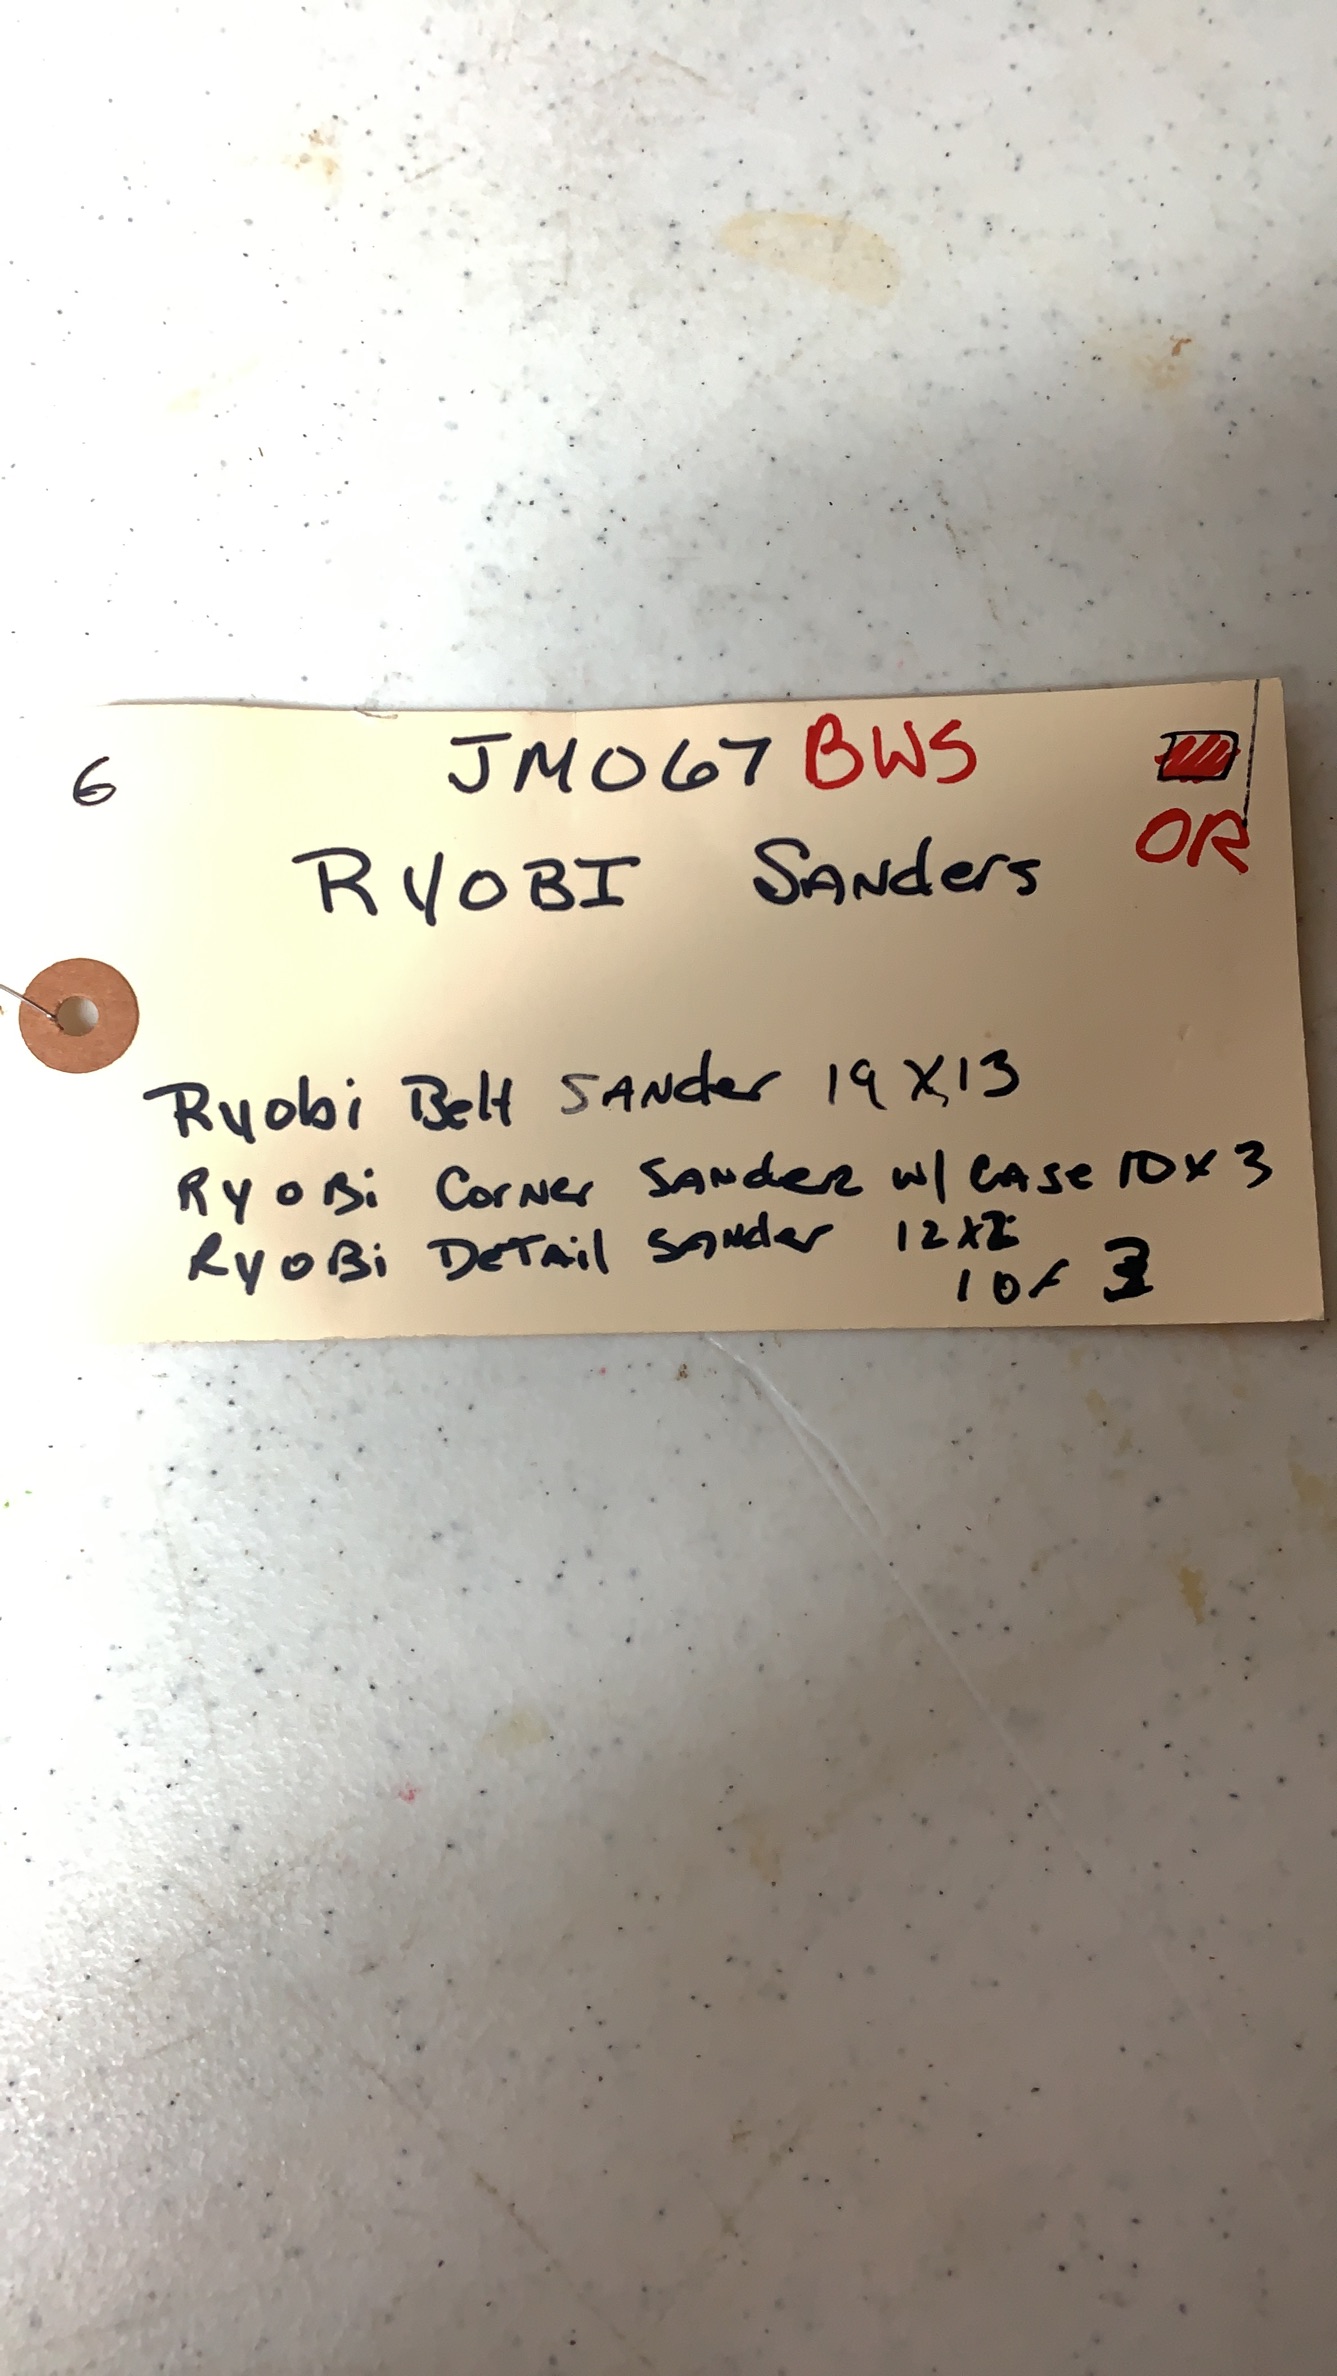 6 JM067 BWS
OR
RYOBI Sanders
Ryobi Belt Sander 19 X 13
RyoBi Corner Sander w/ Case 10 x 3
RyoBi Detail Sander 12 x 2
1 of 3